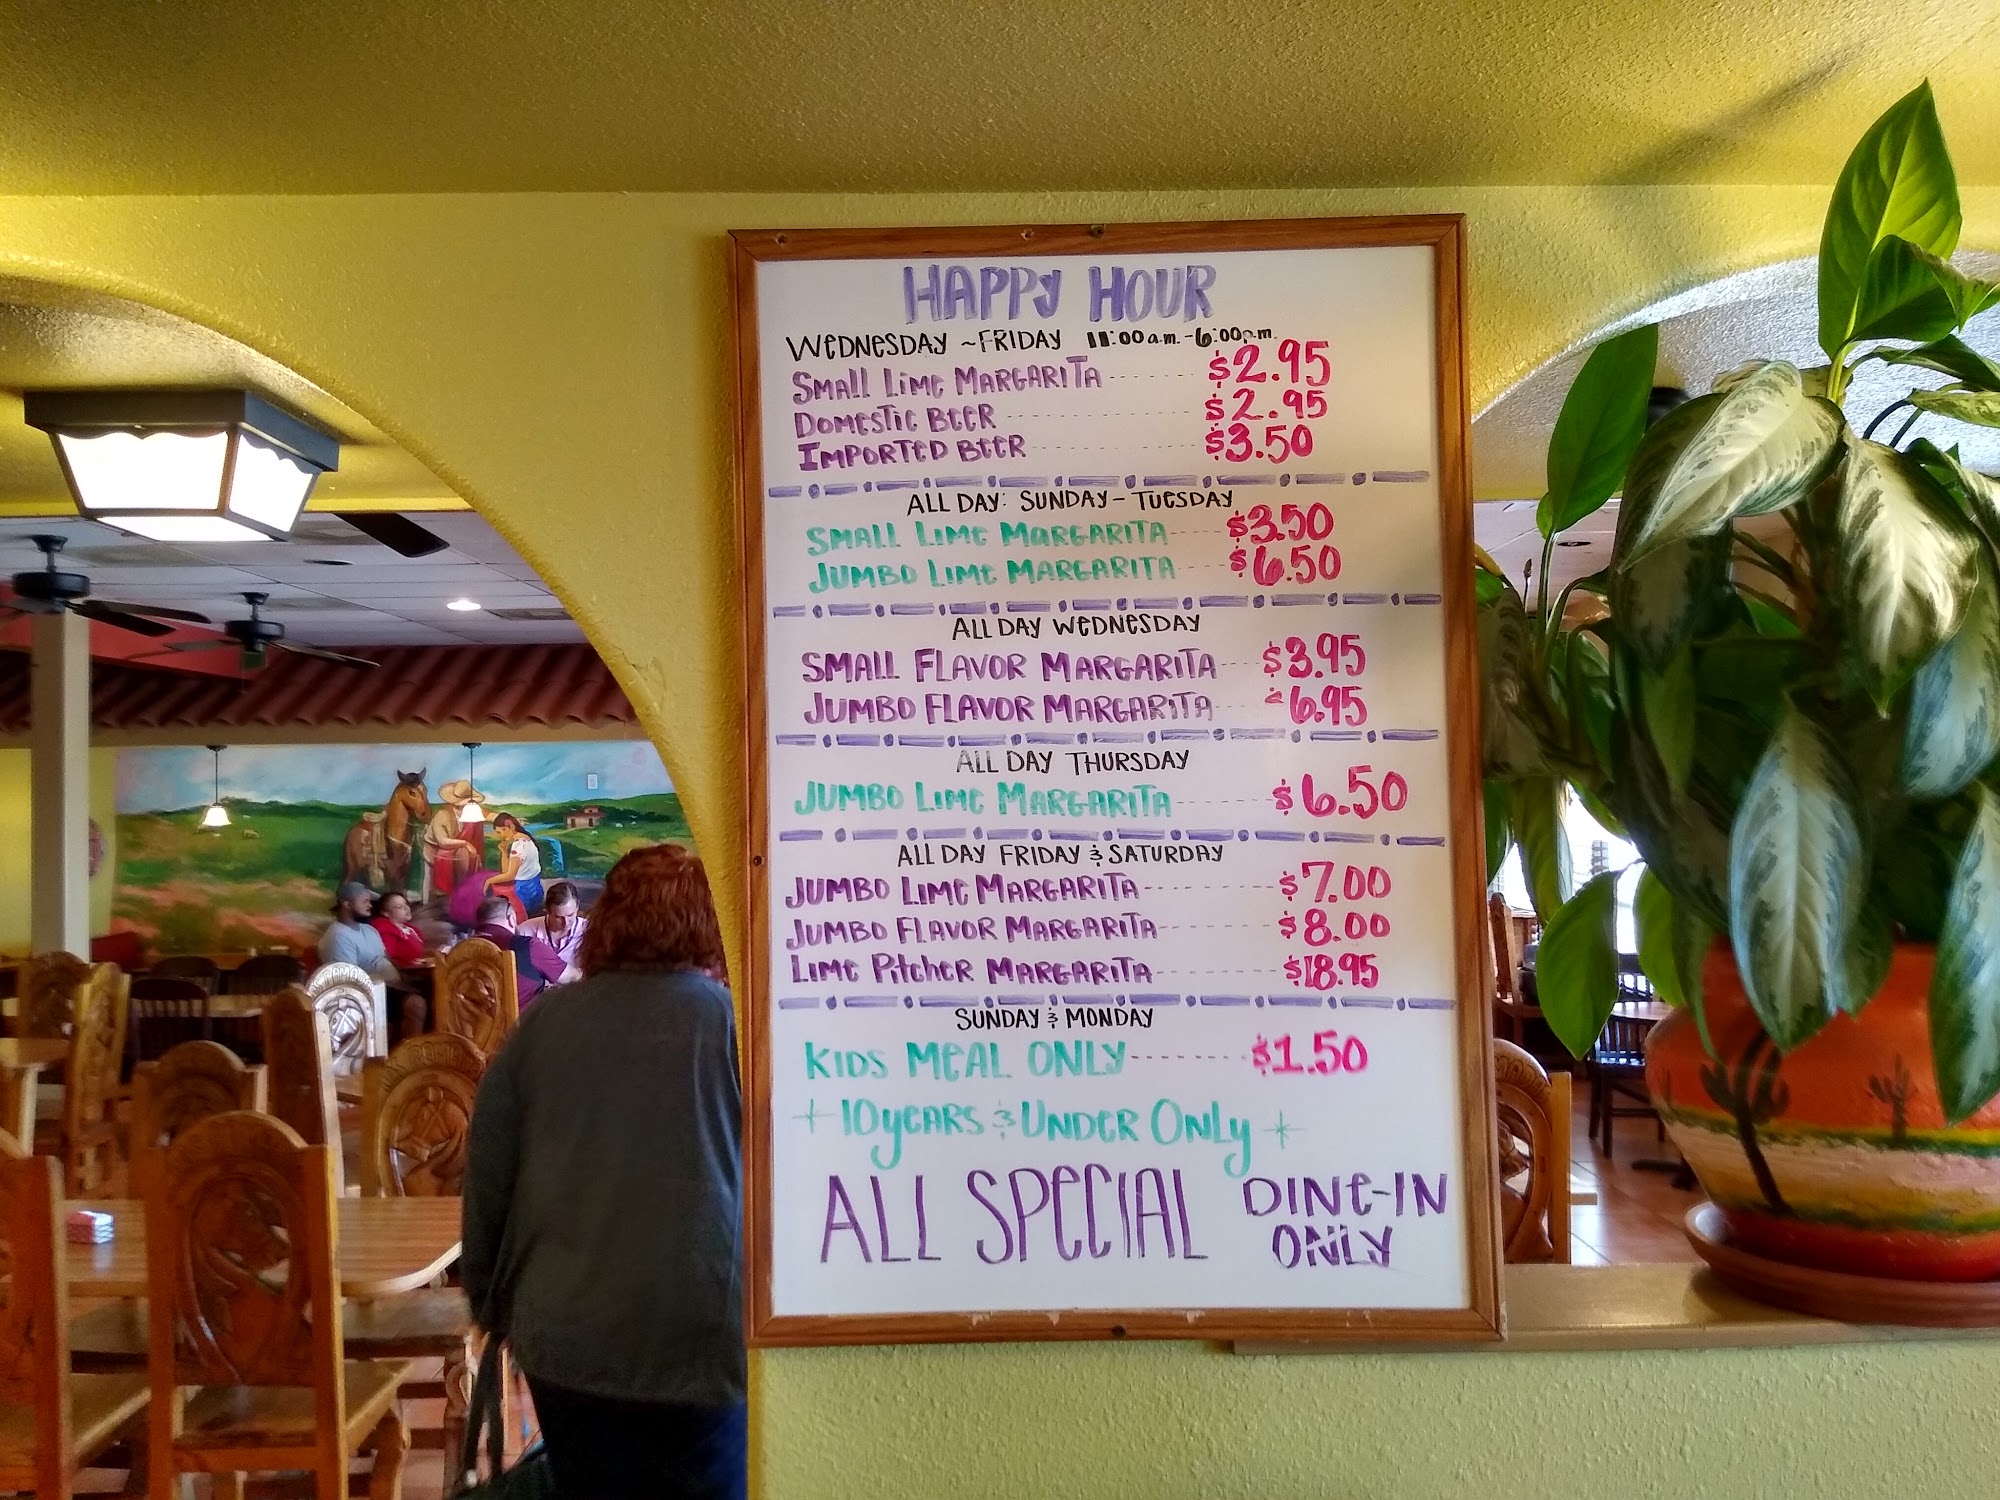 HAPPY HOUR
WEDNESDAY ~FRIDAY 11:00 a.m.-6:00p.m.
SMALL LIME MARGARITA ------ $2.95
DOMESTIC BEER ------------- $2.95
IMPORTED BEER ------------- $3.50
ALL DAY: SUNDAY - TUESDAY
SMALL LIME MARGARITA ---- $3.50
JUMBO LIME MARGARITA ---- $6.50
ALL DAY WEDNESDAY
SMALL FLAVOR MARGARITA --- $3.95
JUMBO FLAVOR MARGARITA --- $6.95
ALL DAY THURSDAY
JUMBO LIME MARGARITA -------- $6.50
ALL DAY FRIDAY & SATURDAY
JUMBO LIME MARGARITA ---------- $7.00
JUMBO FLAVOR MARGARITA -------- $8.00
LIME PITCHER MARGARITA -------- $18.95
SUNDAY & MONDAY
KIDS MEAL ONLY -------- $1.50
10 YEARS & UNDER ONLY
ALL SPECIAL DINE-IN ONLY